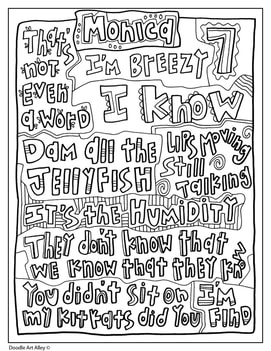 Monica
7
That's not even a word
I'm Breezy
I Know
Dam all the Jellyfish
Lips Moving Still Talking
It's the Humidity
They don't know that we know that they know
You didn't sit on my kitkats did you
I'm Fine
Doodle Art Alley ©